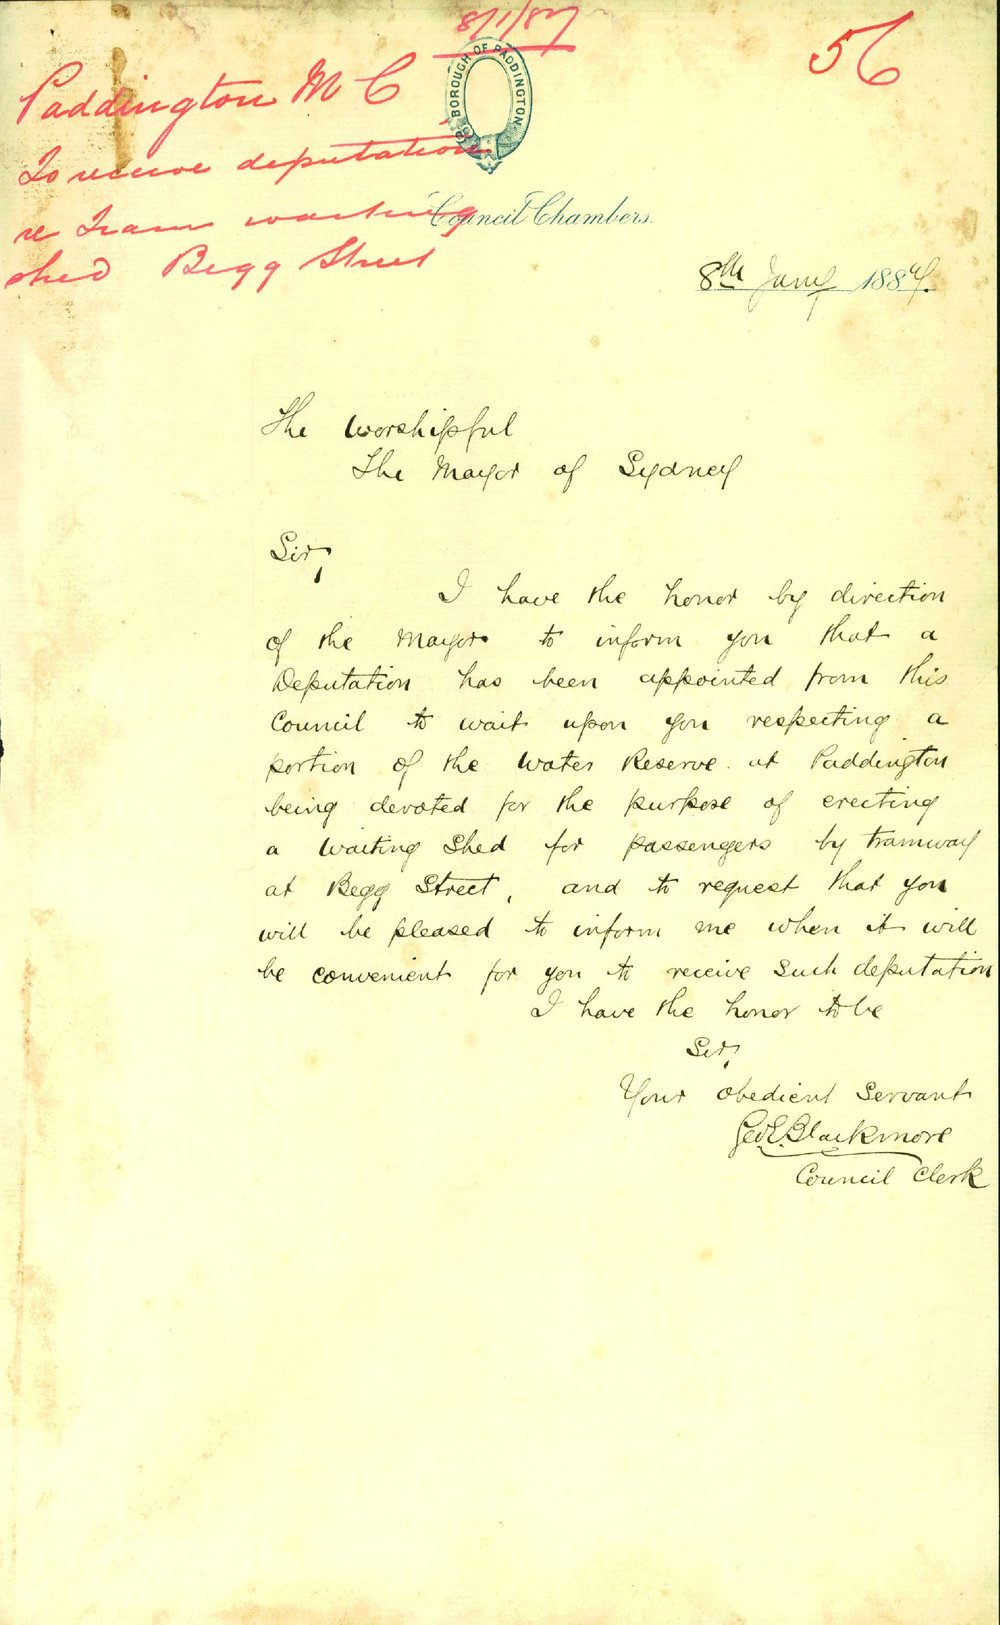 8/1/87
56
Paddington M C
To receive deputation
re Tram waiting
shed Begg Street
BOROUGH OF PADDINGTON
Council Chambers.
8th Jany 1887.
The Worshipful
The Mayor of Sydney
Sir,
I have the honor by direction
of the Mayor to inform you that a
Deputation has been appointed from this
Council to wait upon you respecting a
portion of the Water Reserve at Paddington
being devoted for the purpose of erecting
a Waiting Shed for passengers by tramway
at Begg Street, and to request that you
will be pleased to inform me when it will
be convenient for you to receive such deputation
I have the honor to be
Sir,
Your obedient Servant
Geo E. Blackmore
Council Clerk